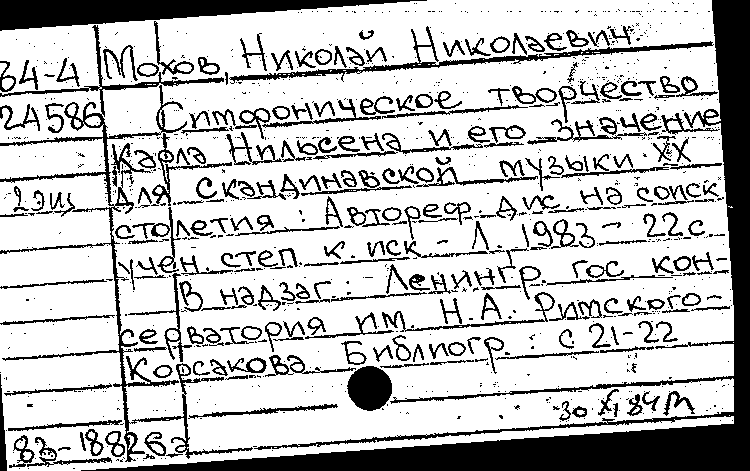 84-4 Мохов, Николай Николаевич.
2А586 Симфоническое творчество
Карла Нильсена и его значение
2 экз для скандинавской музыки XX
столетия : Автореф. дис. на соиск
учен. степ. к. иск - Л., 1983 - 22 с.
В надзаг.: Ленингр. гос. кон-
серватория им. Н.А. Римского-
Корсакова. Библиогр. : с 21-22
30 XI 84
83-18826а